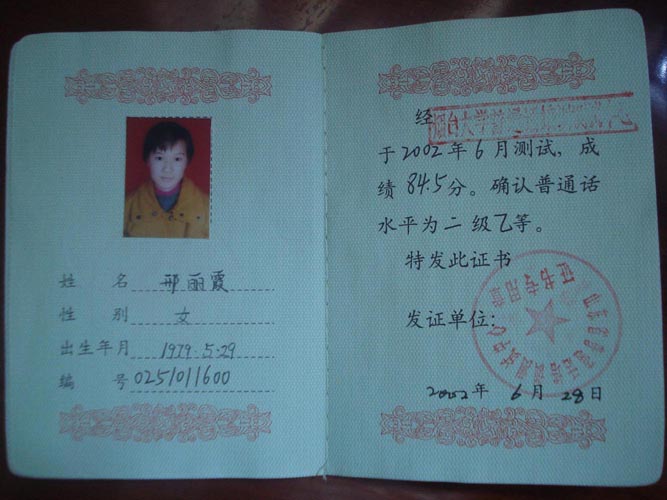 姓 名 邢丽霞
性 别 女
出生年月 1979.5.29
编 号 0251011600
经
烟台大学普通话培训测试中心
于2002年6月测试，成
绩84.5分。确认普通话
水平为二级乙等。
特发此证书
发证单位:
证书专用章
2002年 6月 28日